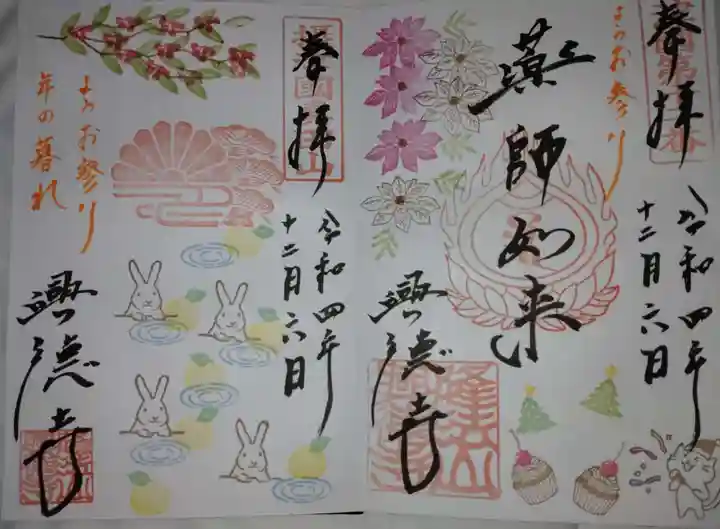 奉拝
よきお参り
薬師如来
令和四年
十二月六日
興徳寺
奉拝
よきお参り
年の暮れ
令和四年
十二月六日
興徳寺